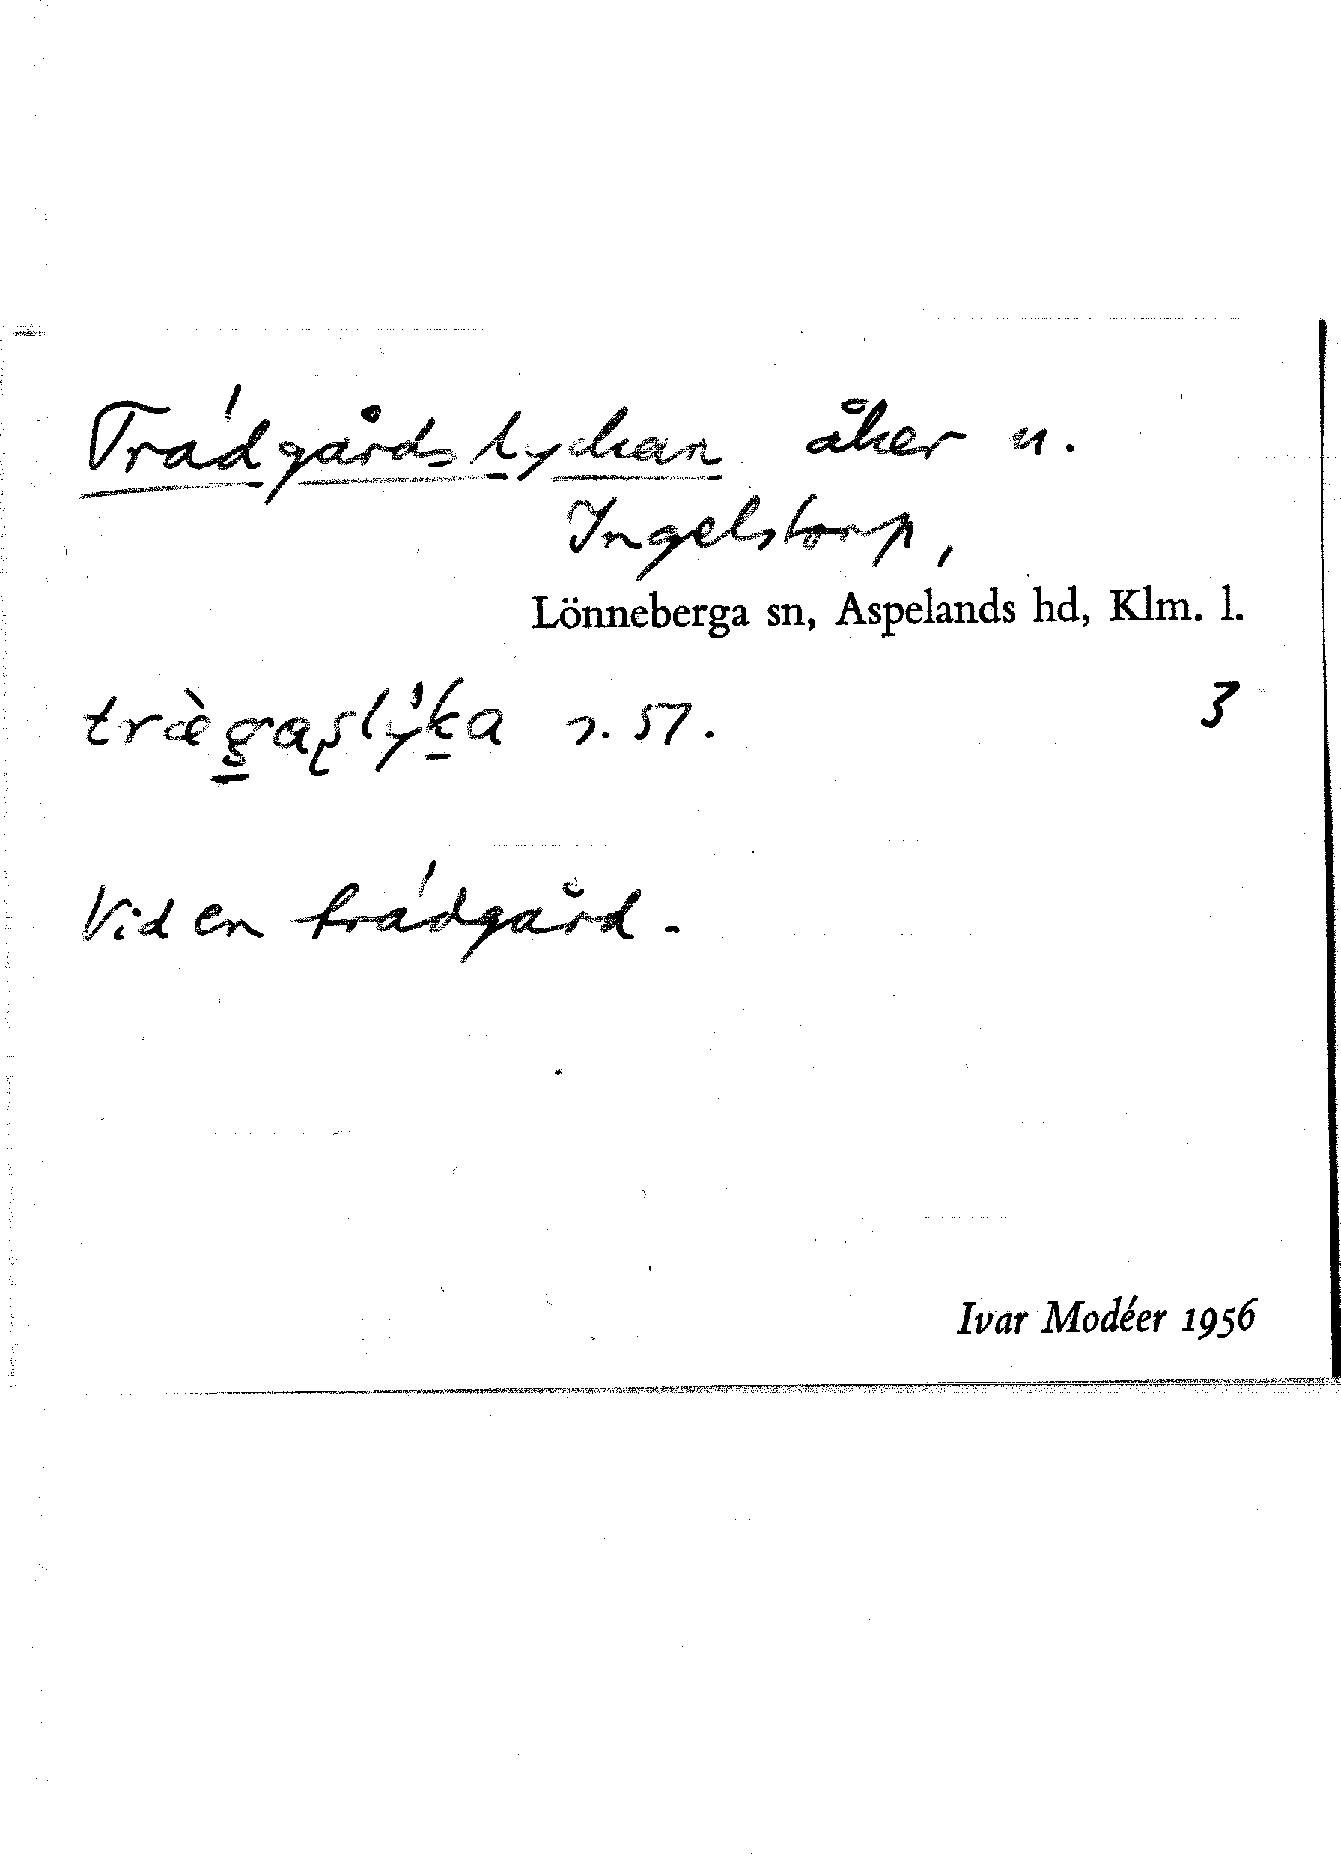 Trädgårdslyckan åker n.
Ingelstorp,
Lönneberga sn, Aspelands hd, Klm. l.
træ̀g̲aʂlý̍k̲a s. 57. 3
Vid en trädgård.
Ivar Modéer 1956